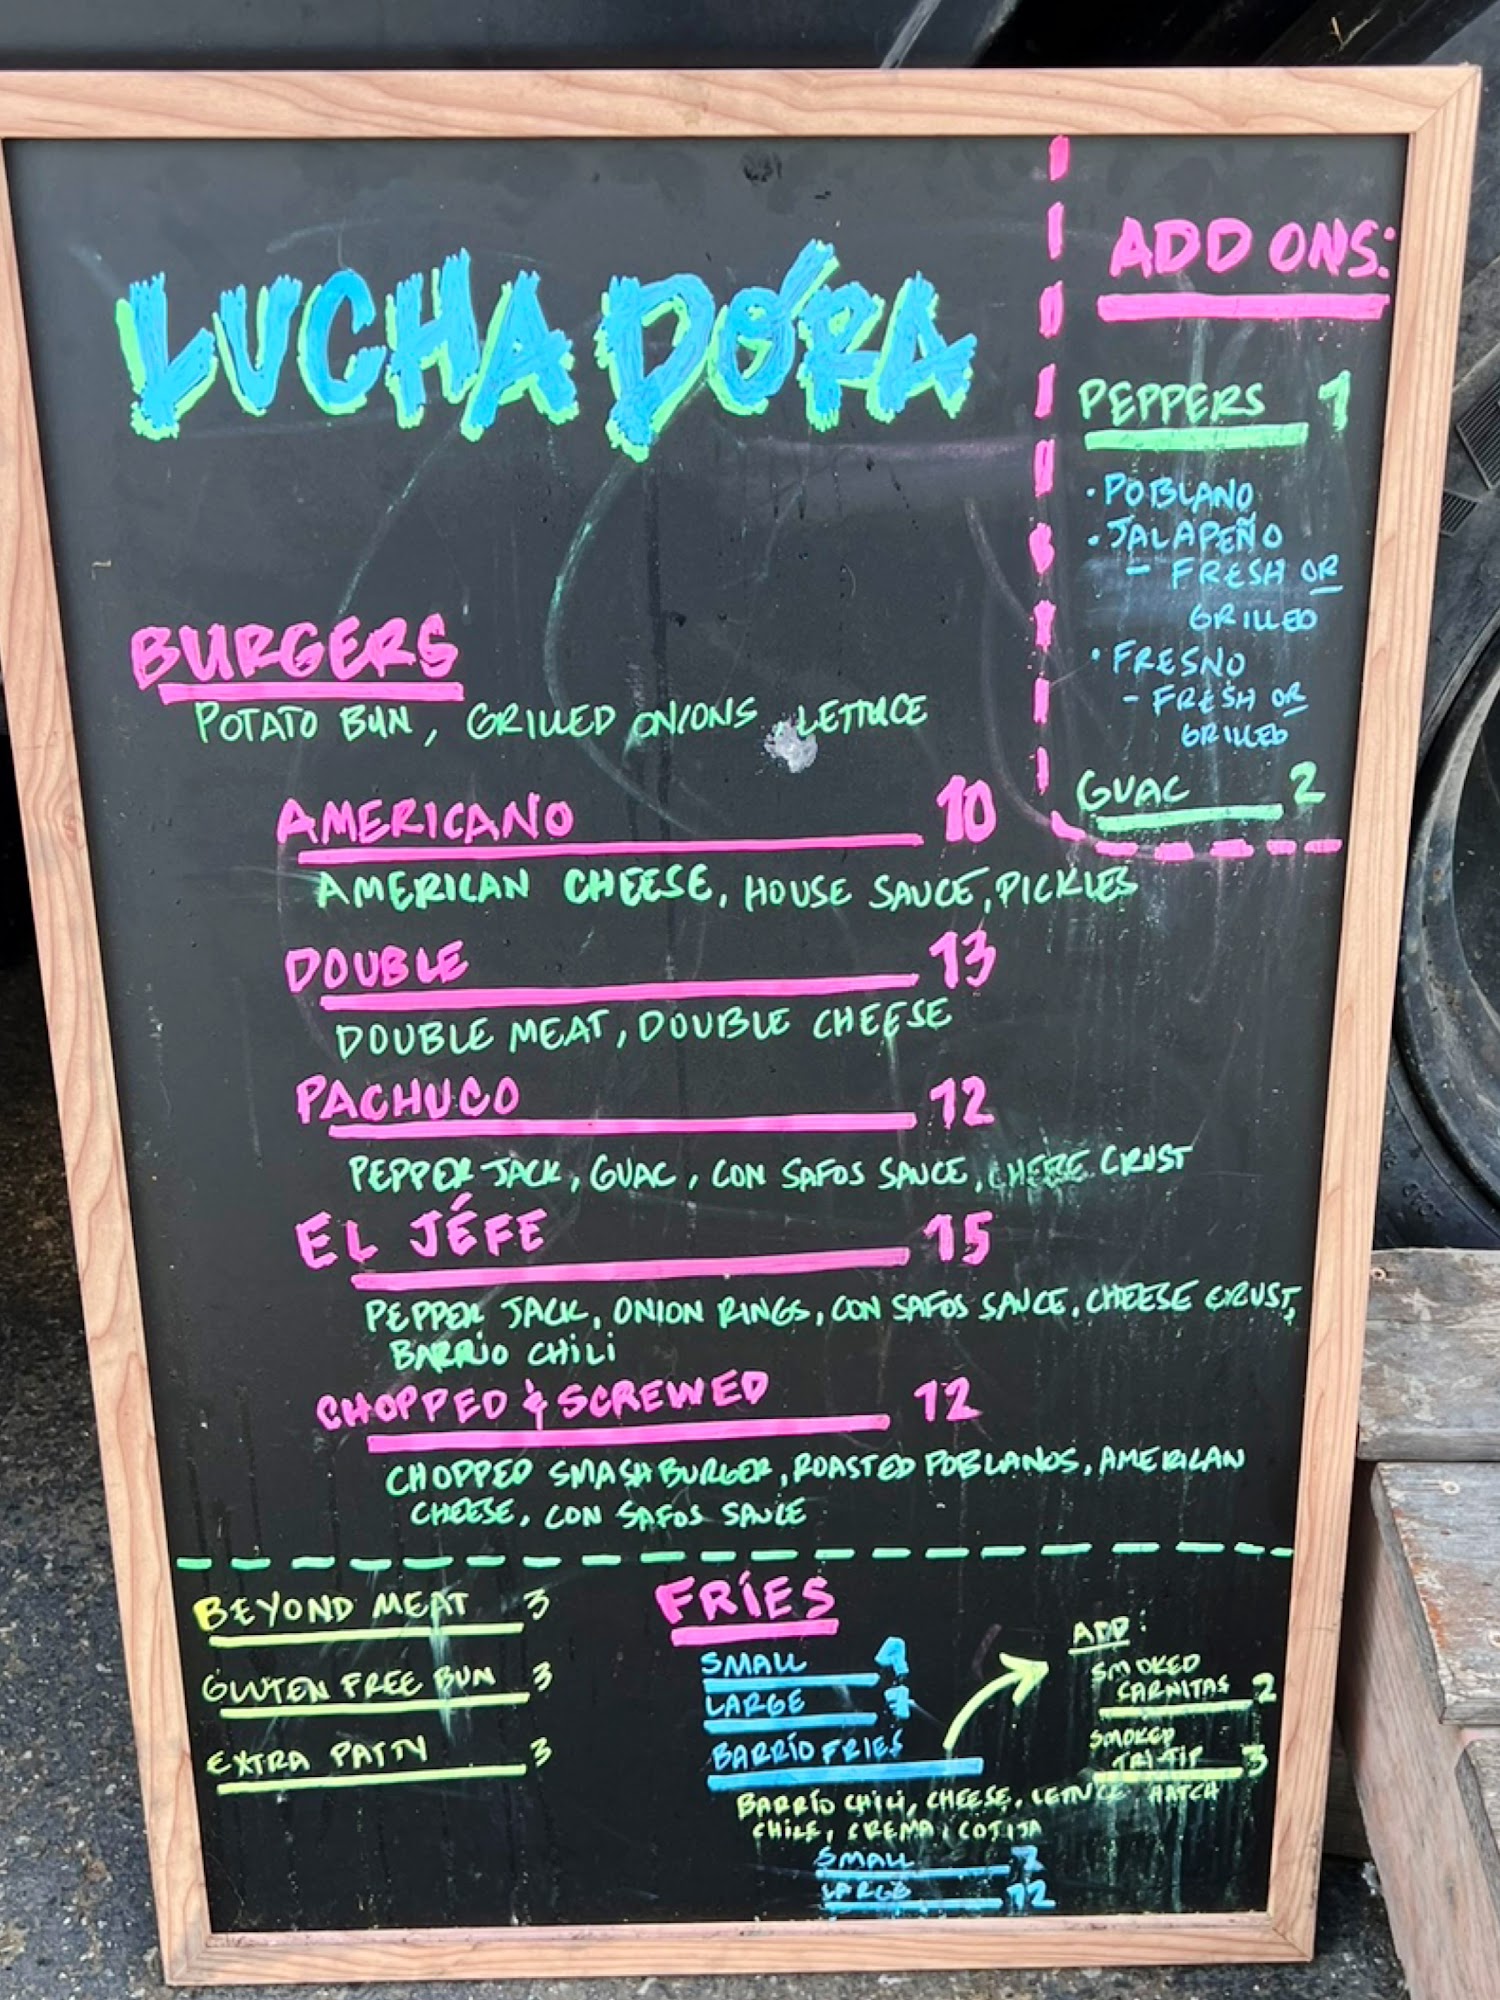 LUCHADÓRA
BURGERS
POTATO BUN, GRILLED ONIONS, LETTUCE
AMERICANO 10
AMERICAN CHEESE, HOUSE SAUCE, PICKLES
DOUBLE 13
DOUBLE MEAT, DOUBLE CHEESE
PACHUCO 12
PEPPER JACK, GUAC, CON SAFOS SAUCE, CHEESE CRUST
EL JÉFE 15
PEPPER JACK, ONION RINGS, CON SAFOS SAUCE, CHEESE CRUST,
BARRIO CHILI
CHOPPED & SCREWED 12
CHOPPED SMASHBURGER, ROASTED POBLANOS, AMERICAN
CHEESE, CON SAFOS SAUCE
ADD ONS:
PEPPERS 1
• POBLANO
• JALAPEÑO
- FRESH OR
GRILLED
• FRESNO
- FRESH OR
GRILLED
GUAC 2
BEYOND MEAT 3
GLUTEN FREE BUN 3
EXTRA PATTY 3
FRÍES
SMALL
LARGE 7
BARRÍO FRIES
BARRÍO CHILI, CHEESE, LETTUCE, HATCH
CHILE, CREMA, COTIJA
SMALL 7
LARGE 12
ADD:
SMOKED
CARNITAS 2
SMOKED
TRI-TIP 3